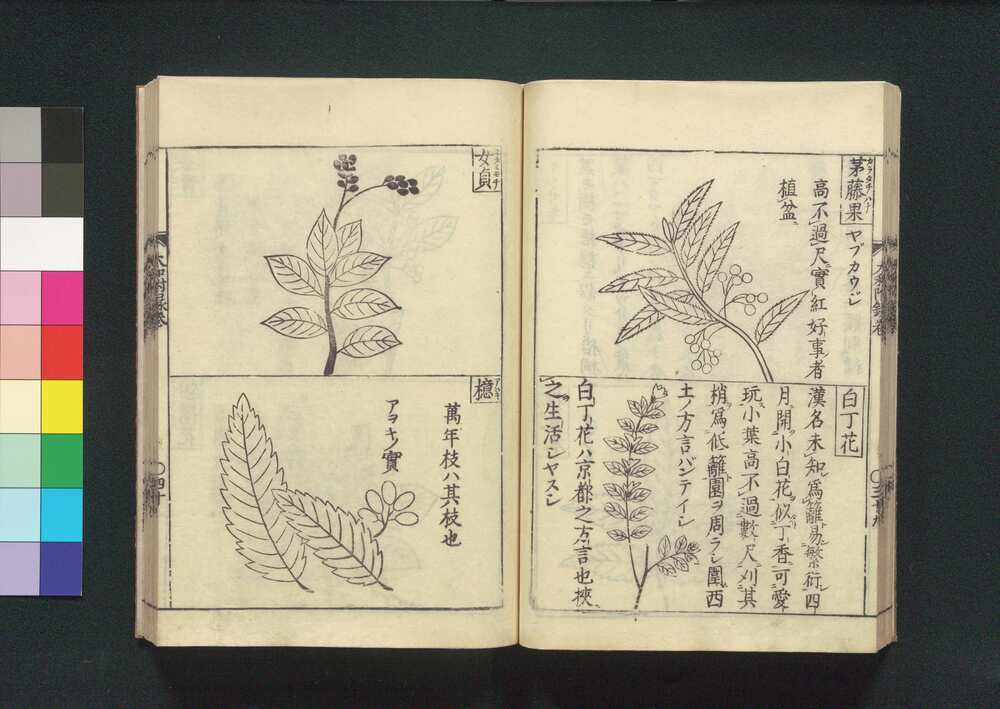 茅藤果 カラタチハナ ヤブカウジ
高不過尺實紅好事者
植盆
白丁花
漢名未知為籬易繁衍四
月開小白花似丁香可愛
玩小葉高不過數尺刈其
梢為低籬園ヲ周ラシ圍西
土ノ方言バンテイシ
白丁花ハ京都之方言也挾
之生活シヤスシ
女貞
檍 アヲキ
萬年枝ハ其枝也
アヲキノ實
〇四十